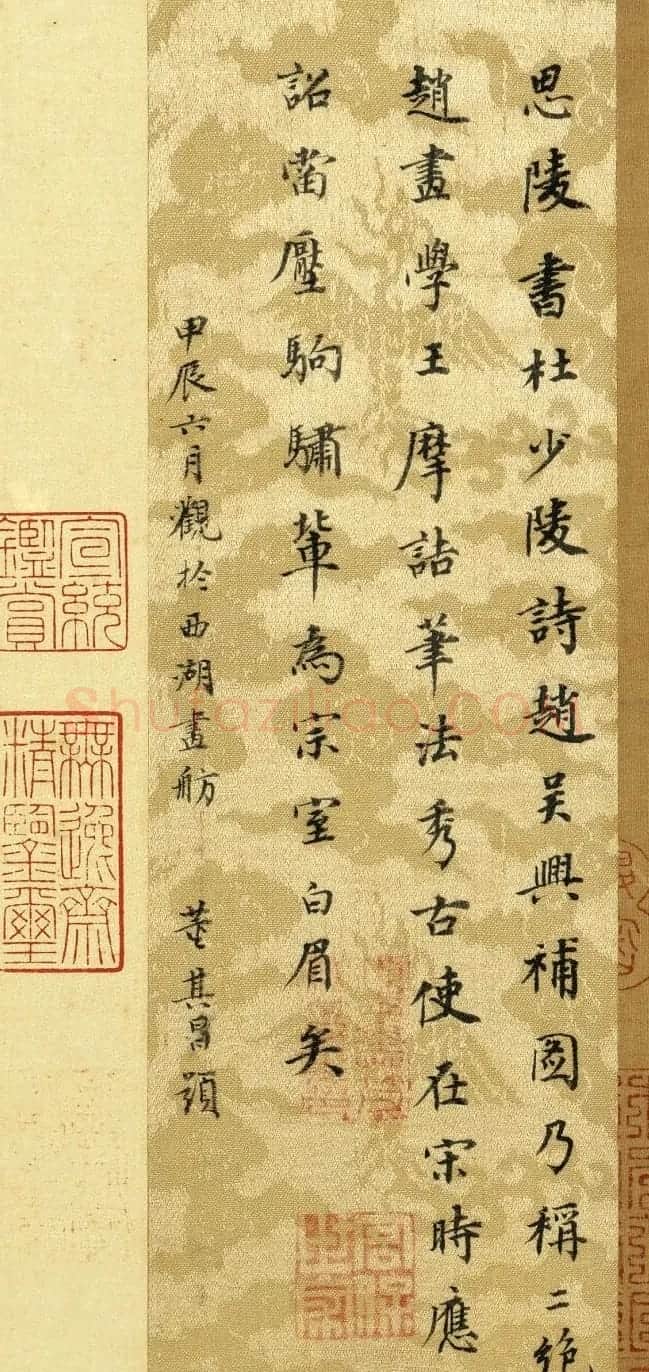 思陵書杜少陵詩趙吴興補圖乃稱二絶
趙畫學王摩詰筆法秀古使在宋時應
詔當壓駒驌輩為宗室白眉矣
甲辰六月觀於西湖畫舫 董其昌題
宣統鑑賞
無逸齋精鑒璽
shufaziliao.com